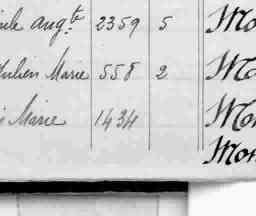 ile aug.te 2359 5 Mo
Julien Marie 558 2 Mo
s Marie 1434 Mon
Mon